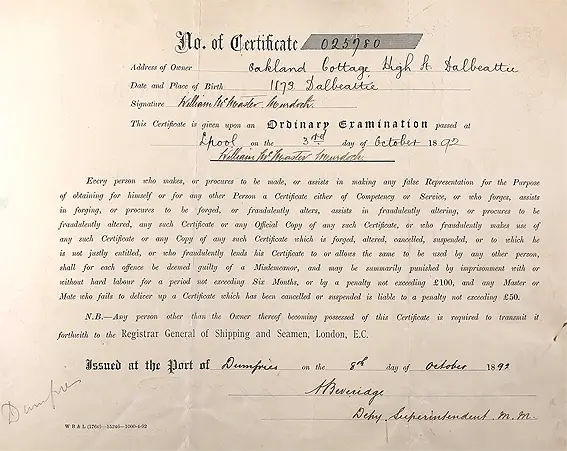 No. of Certificate 025780
Address of Owner Oakland Cottage High St. Dalbeattie
Date and Place of Birth 1873 Dalbeattie
Signature William McMaster Murdoch.
This Certificate is given upon an Ordinary Examination passed at
L'pool on the 3rd day of October 1892
William McMaster Murdoch
Every person who makes, or procures to be made, or assists in making any false Representation for the Purpose
of obtaining for himself or for any other Person a Certificate either of Competency or Service, or who forges, assists
in forging, or procures to be forged, or fraudulently alters, assists in fraudulently altering, or procures to be
fraudulently altered, any such Certificate or any Official Copy of any such Certificate, or who fraudulently makes use of
any such Certificate or any Copy of any such Certificate which is forged, altered, cancelled, suspended, or to which he
is not justly entitled, or who fraudulently lends his Certificate to or allows the same to be used by any other person,
shall for each offence be deemed guilty of a Misdemeanor, and may be summarily punished by imprisonment with or
without hard labour for a period not exceeding Six Months, or by a penalty not exceeding £100, and any Master or
Mate who fails to deliver up a Certificate which has been cancelled or suspended is liable to a penalty not exceeding £50.
N.B.—Any person other than the Owner thereof becoming possessed of this Certificate is required to transmit it
forthwith to the Registrar General of Shipping and Seamen, London, E.C.
Issued at the Port of Dumfries on the 8th day of October 1892
A Beveridge
Depy Superintendent M.M.
Dumfries
W B & L (176c)—15246—1000-4-92